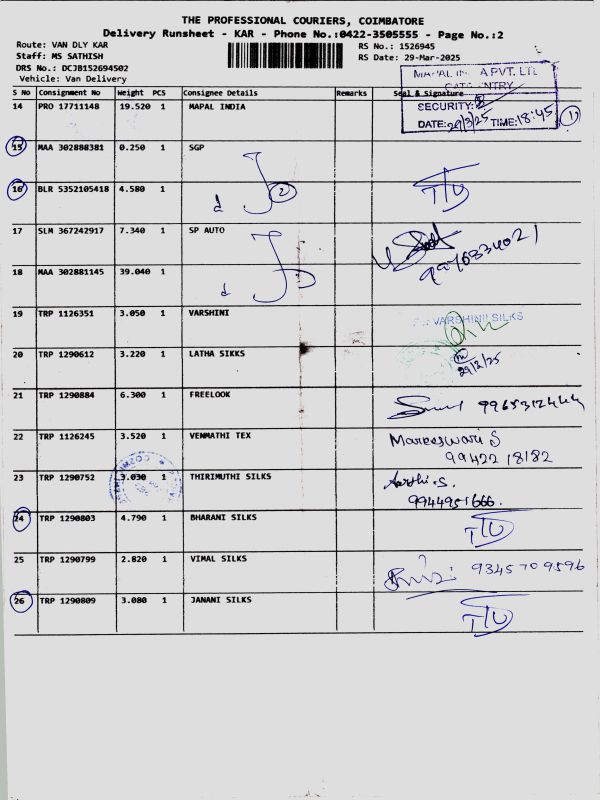 THE PROFESSIONAL COURIERS, COIMBATORE
Delivery Runsheet - KAR - Phone No.:0422-3505555 - Page No.:2
Route: VAN DLY KAR
RS No.: 1526945
Staff: MS SATHISH
RS Date: 29-Mar-2025
DRS No.: DCJB152694502
Vehicle: Van Delivery
S No Consignment No Weight PCS Consignee Details Remarks Seal & Signature
14 PRO 17711148 19.520 1 MAPAL INDIA
A PVT. LTD
SECURITY:
DATE: 29/3/25 TIME: 18:45
15 MAA 302888381 0.250 1 SGP
16 BLR 5352105418 4.580 1 d 2
17 SLM 367242917 7.340 1 SP AUTO
18 MAA 302881145 39.040 1 d
19 TRP 1126351 3.050 1 VARSHINI VARSHINII SILKS
20 TRP 1290612 3.220 1 LATHA SIKKS
21 TRP 1290884 6.300 1 FREELOOK
22 TRP 1126245 3.520 1 VENMATHI TEX Mareeswari S
99422 18182
23 TRP 1290752 3.030 1 THIRIMUTHI SILKS Aarthi.S.
9944951666.
24 TRP 1290803 4.790 1 BHARANI SILKS
25 TRP 1290799 2.820 1 VIMAL SILKS 9345709596
26 TRP 1290809 3.080 1 JANANI SILKS